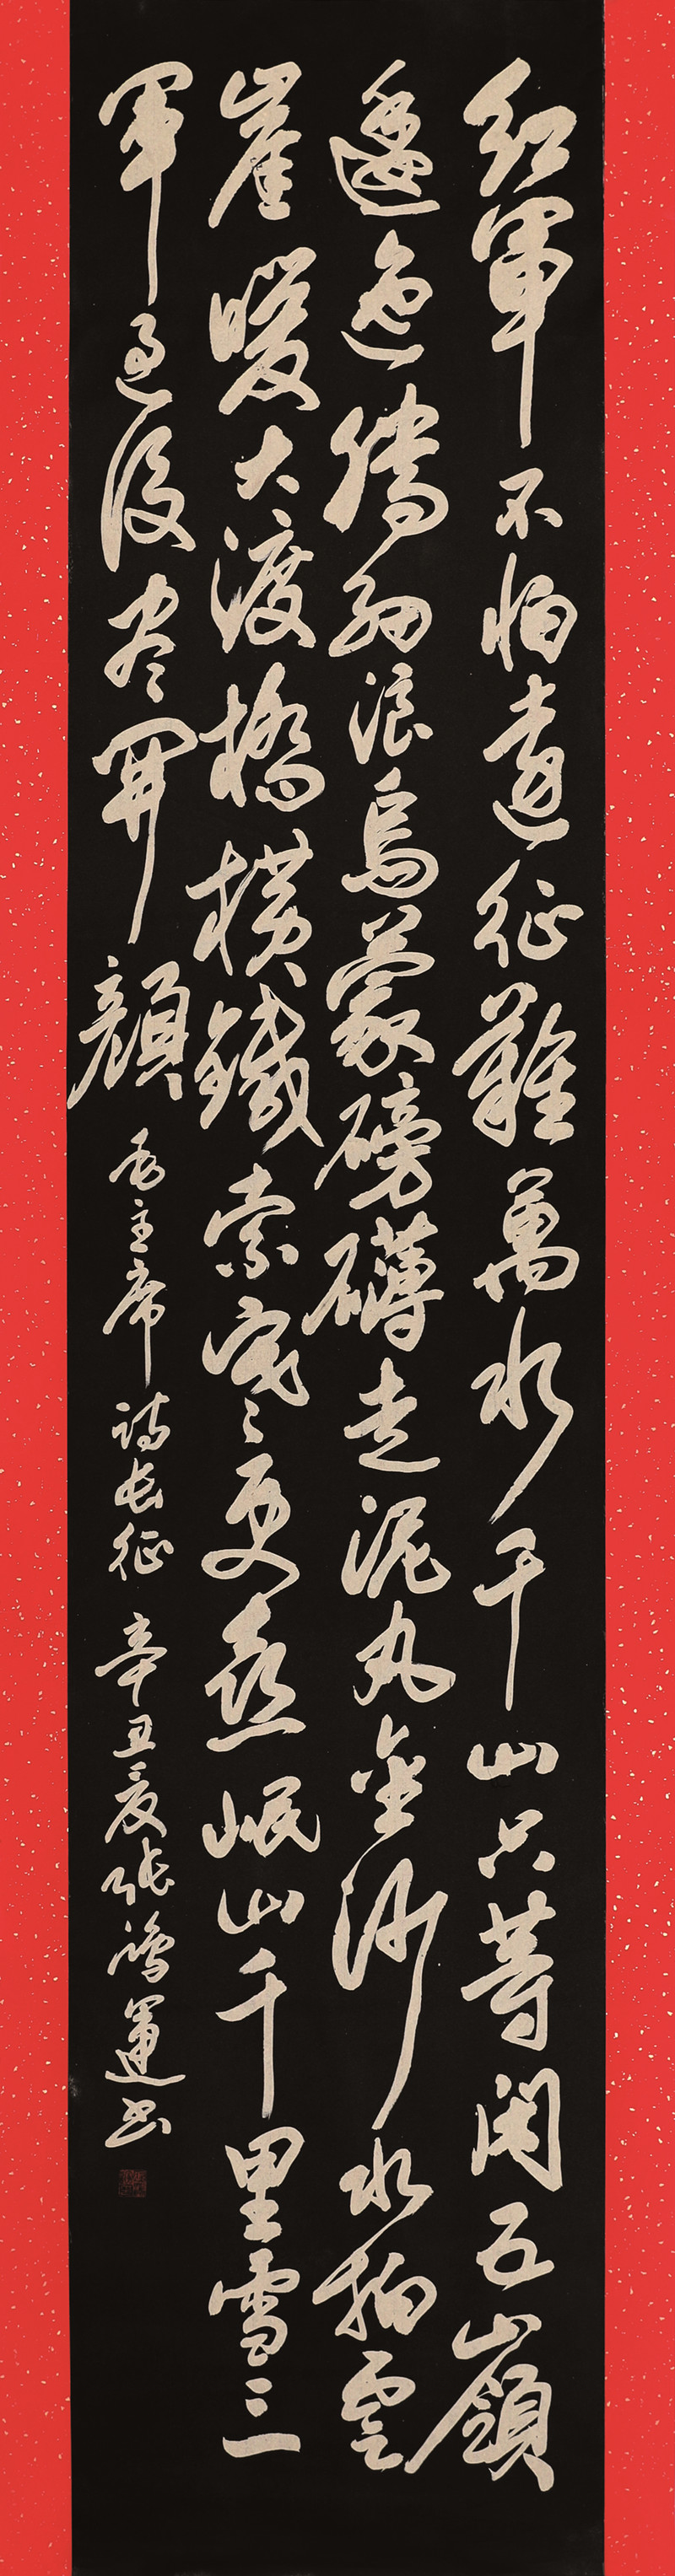 紅軍不怕遠征難萬水千山只等閑五嶺
逶迤騰細浪烏蒙磅礴走泥丸金沙水拍雲
崖暖大渡橋橫鐵索寒更喜岷山千里雪三
軍過後尽開顏 毛主席詩長征 辛丑夏張鴻運書